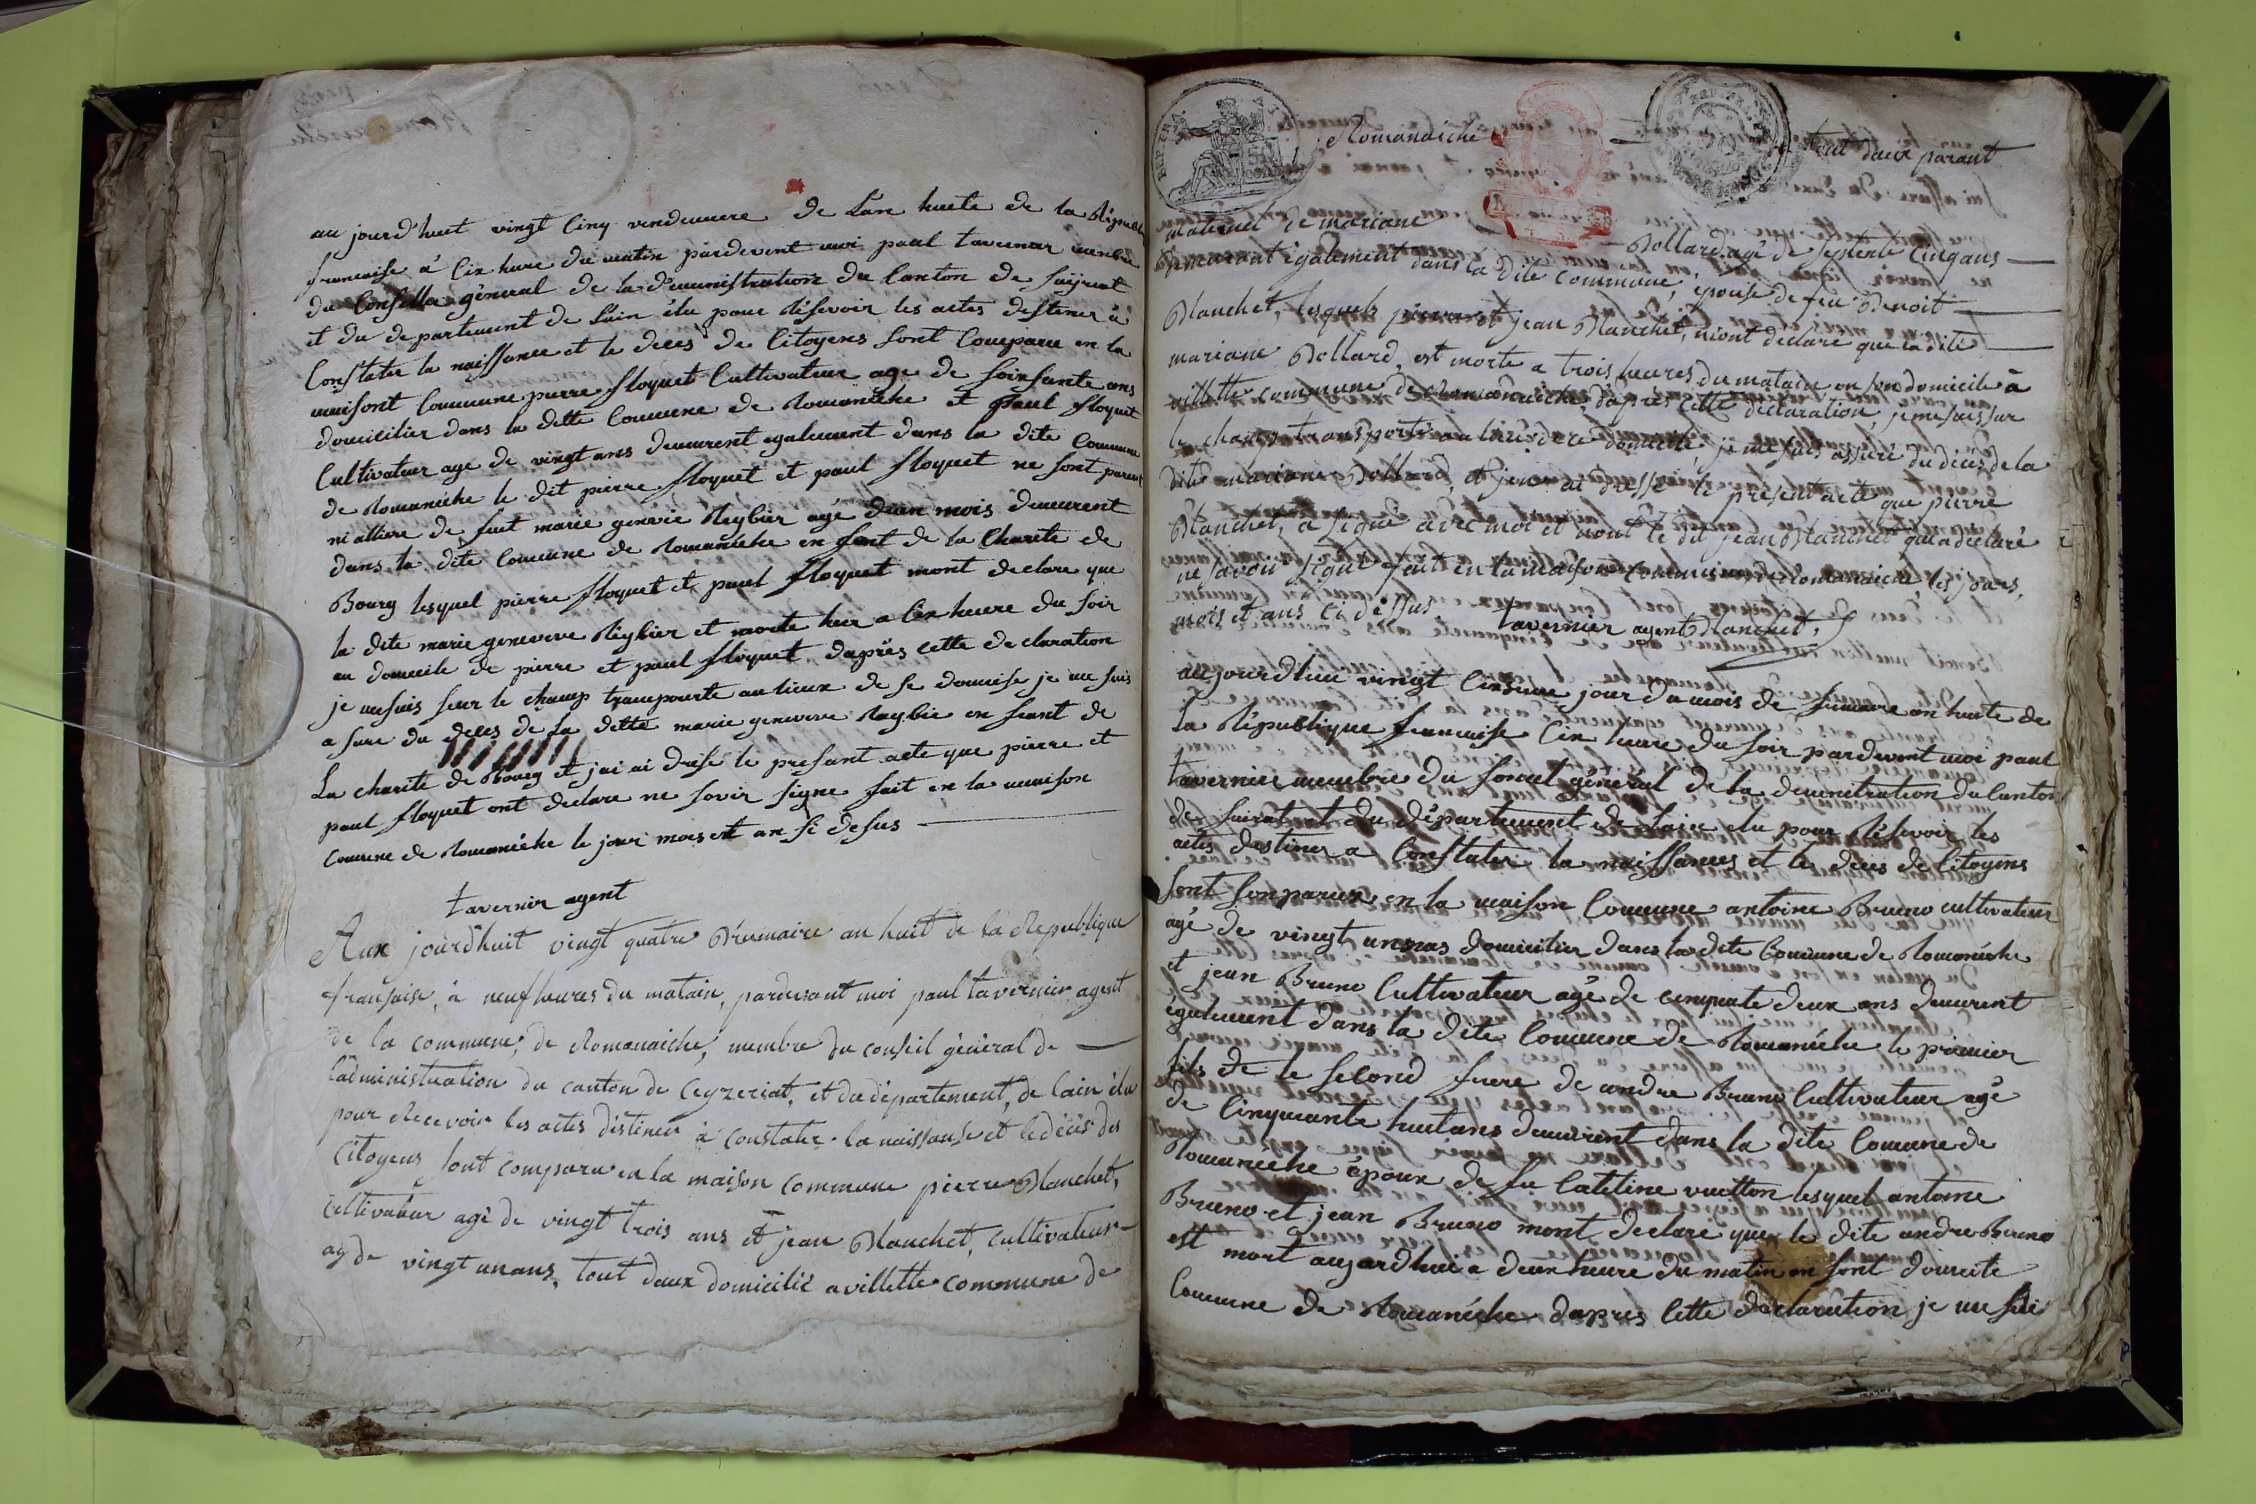 au jourd'huit vingt cinq vendemiere de Lan huite de la Républi
francaise à cix hure du matin pardevent moi paul tavernier membre
du Conseilla géneral de la deministration du Canton de Saijriat
et du departement de Lain élu pour Résevoir les actes destiner à
Constater la naissance et le deces de Citoyens sont Comparu en la
maisont Commune pierre floquet Cultivateur age de soinsante ans
domicilier dans la dette Commune de Romanéche et paul floquet
Cultivateur age de vingt ans demurent egalement dans la dite Commune
de Romanéche le dit pierre floquet et paul floquet ne sont parent
ni alliere de fuet marie genevie Reybier agé deux mois demeurent
dans la dite Comune de Romanéche en fent de la Charité de
Bourg lesquel pierre floquet et paul floquet mont declare que
la dite marie genevieve Réybier et morte hier a Cix heure du soir
au domicile de pierre et paul floquet daprés cette declaration
je me suis sur le champ transpourte au lieux de se domcise je me suis
a sure du deces de la dette marie genevieve Raybie en feant de
La charité de Bourg et jai ai drese le presant acte que pierre et
paul floquet ont declare ne sovir signe fait en la maison
Comune de Romanéche le jour mois et an si desus
tavernier agent
Aux jourd'huit vingt quatre Brumaire an huit de la Republique
française, à neuf heures du matain, pardevant moi paul tavernier agent
de la commune, de Romanaiche, membre du conseil géneral de
l'administration du canton de Ceyzeriat, et du département, de lain élu
pour Recevoir les actes déstiner à constater la naissanse et le décès des
Citoyens sont comparu en la maison commune pierre Blanchet,
cultivateur agé de vingt trois ans et jean Blanchet, cultivateur
ag de vingt un ans, tout deux domicilié a villette commune de
Romanaiche tout deux parant
maternel de mariane Bollard agé de septente Cinq ans
demeurant également dans la dite Commune, épouise de feu Benoit
Blanchet, lesquels pierre et jean Blanchet, mont déclaré que la dite
mariane Bollard, est morte a trois heures du matain en son domicile à
villette commune de Romanaiche, d'aprés cette déclaration, je me suis sur
le champ transporté au lieu de ce domicile, je me suis assuré du décès de la
dite mariane Bollard, et j'en ai dressé le présent acte que pierre
Blanchet, a signé avec moi et nont le dit jean Blanchet qui a déclaré
ne savoir signé fait en la maison commune de Romanaiche, les jours,
mois et ans ci déssus tavernier agent Blanchet,
aujourdhui vingt Cinsime jour du mois de frimaire an huite de
la République francaise Cix heure du soir pardevent moi paul
tavernier membre du Conseil général de la deminitration du Canton
de Sairiat et du département de Lain élu pour Résevoir les
actes destiner a Constater la naissances et le deces de Citoyens
sont Conparux en la maison Commune antoine Bruno cultivateur
agé de vingt un ans domicilier dans la dite Commune de Romanéche
et jean Bruno Cultivateur agé de cinquate deux ans demurent
égalment dans la dite Comune de Romanéche le primier
fils de le second frere de andre Bruno Cultivateur agé
de Cinquante huit ans demurent dans la dite Comune de
Romanéche époux de fu Catetine vuitton lesquel antoine
Bruno et jean Bruno mont declare que le dite andre Bruno
est mort aujardhui a deux heure du matin en sont domicite
Commune de Romanéche daprés Cette déclaration je me sui